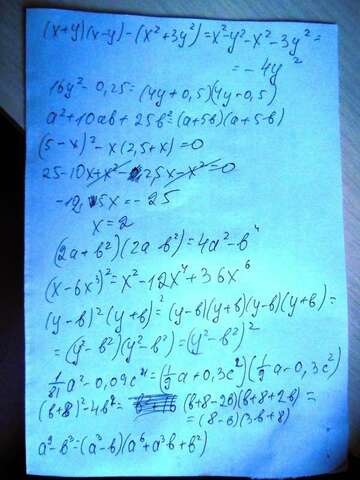 (x+y)(x-y)-(x²+3y²)=x²-y²-x²-3y²=
=-4y²
16y²-0,25=(4y+0,5)(4y-0,5)
a²+10ab+25b²=(a+5b)(a+5b)
(5-x)²-x(2,5+x)=0
25-10x+x²-2,5x-x²=0
-12,5x=-25
x=2
(2a+b²)(2a-b²)=4a²-b⁴
(x-6x³)²=x²-12x⁴+36x⁶
(y-b)²(y+b)²=(y-b)(y+b)(y-b)(y+b)=
=(y²-b²)(y²-b²)=(y²-b²)²
1/81a²-0,09c⁴=(1/9a+0,3c²)(1/9a-0,3c²)
(b+8)²-4b²=(b+8-2b)(b+8+2b)=
=(8-b)(3b+8)
a⁹-b³=(a³-b)(a⁶+a³b+b²)